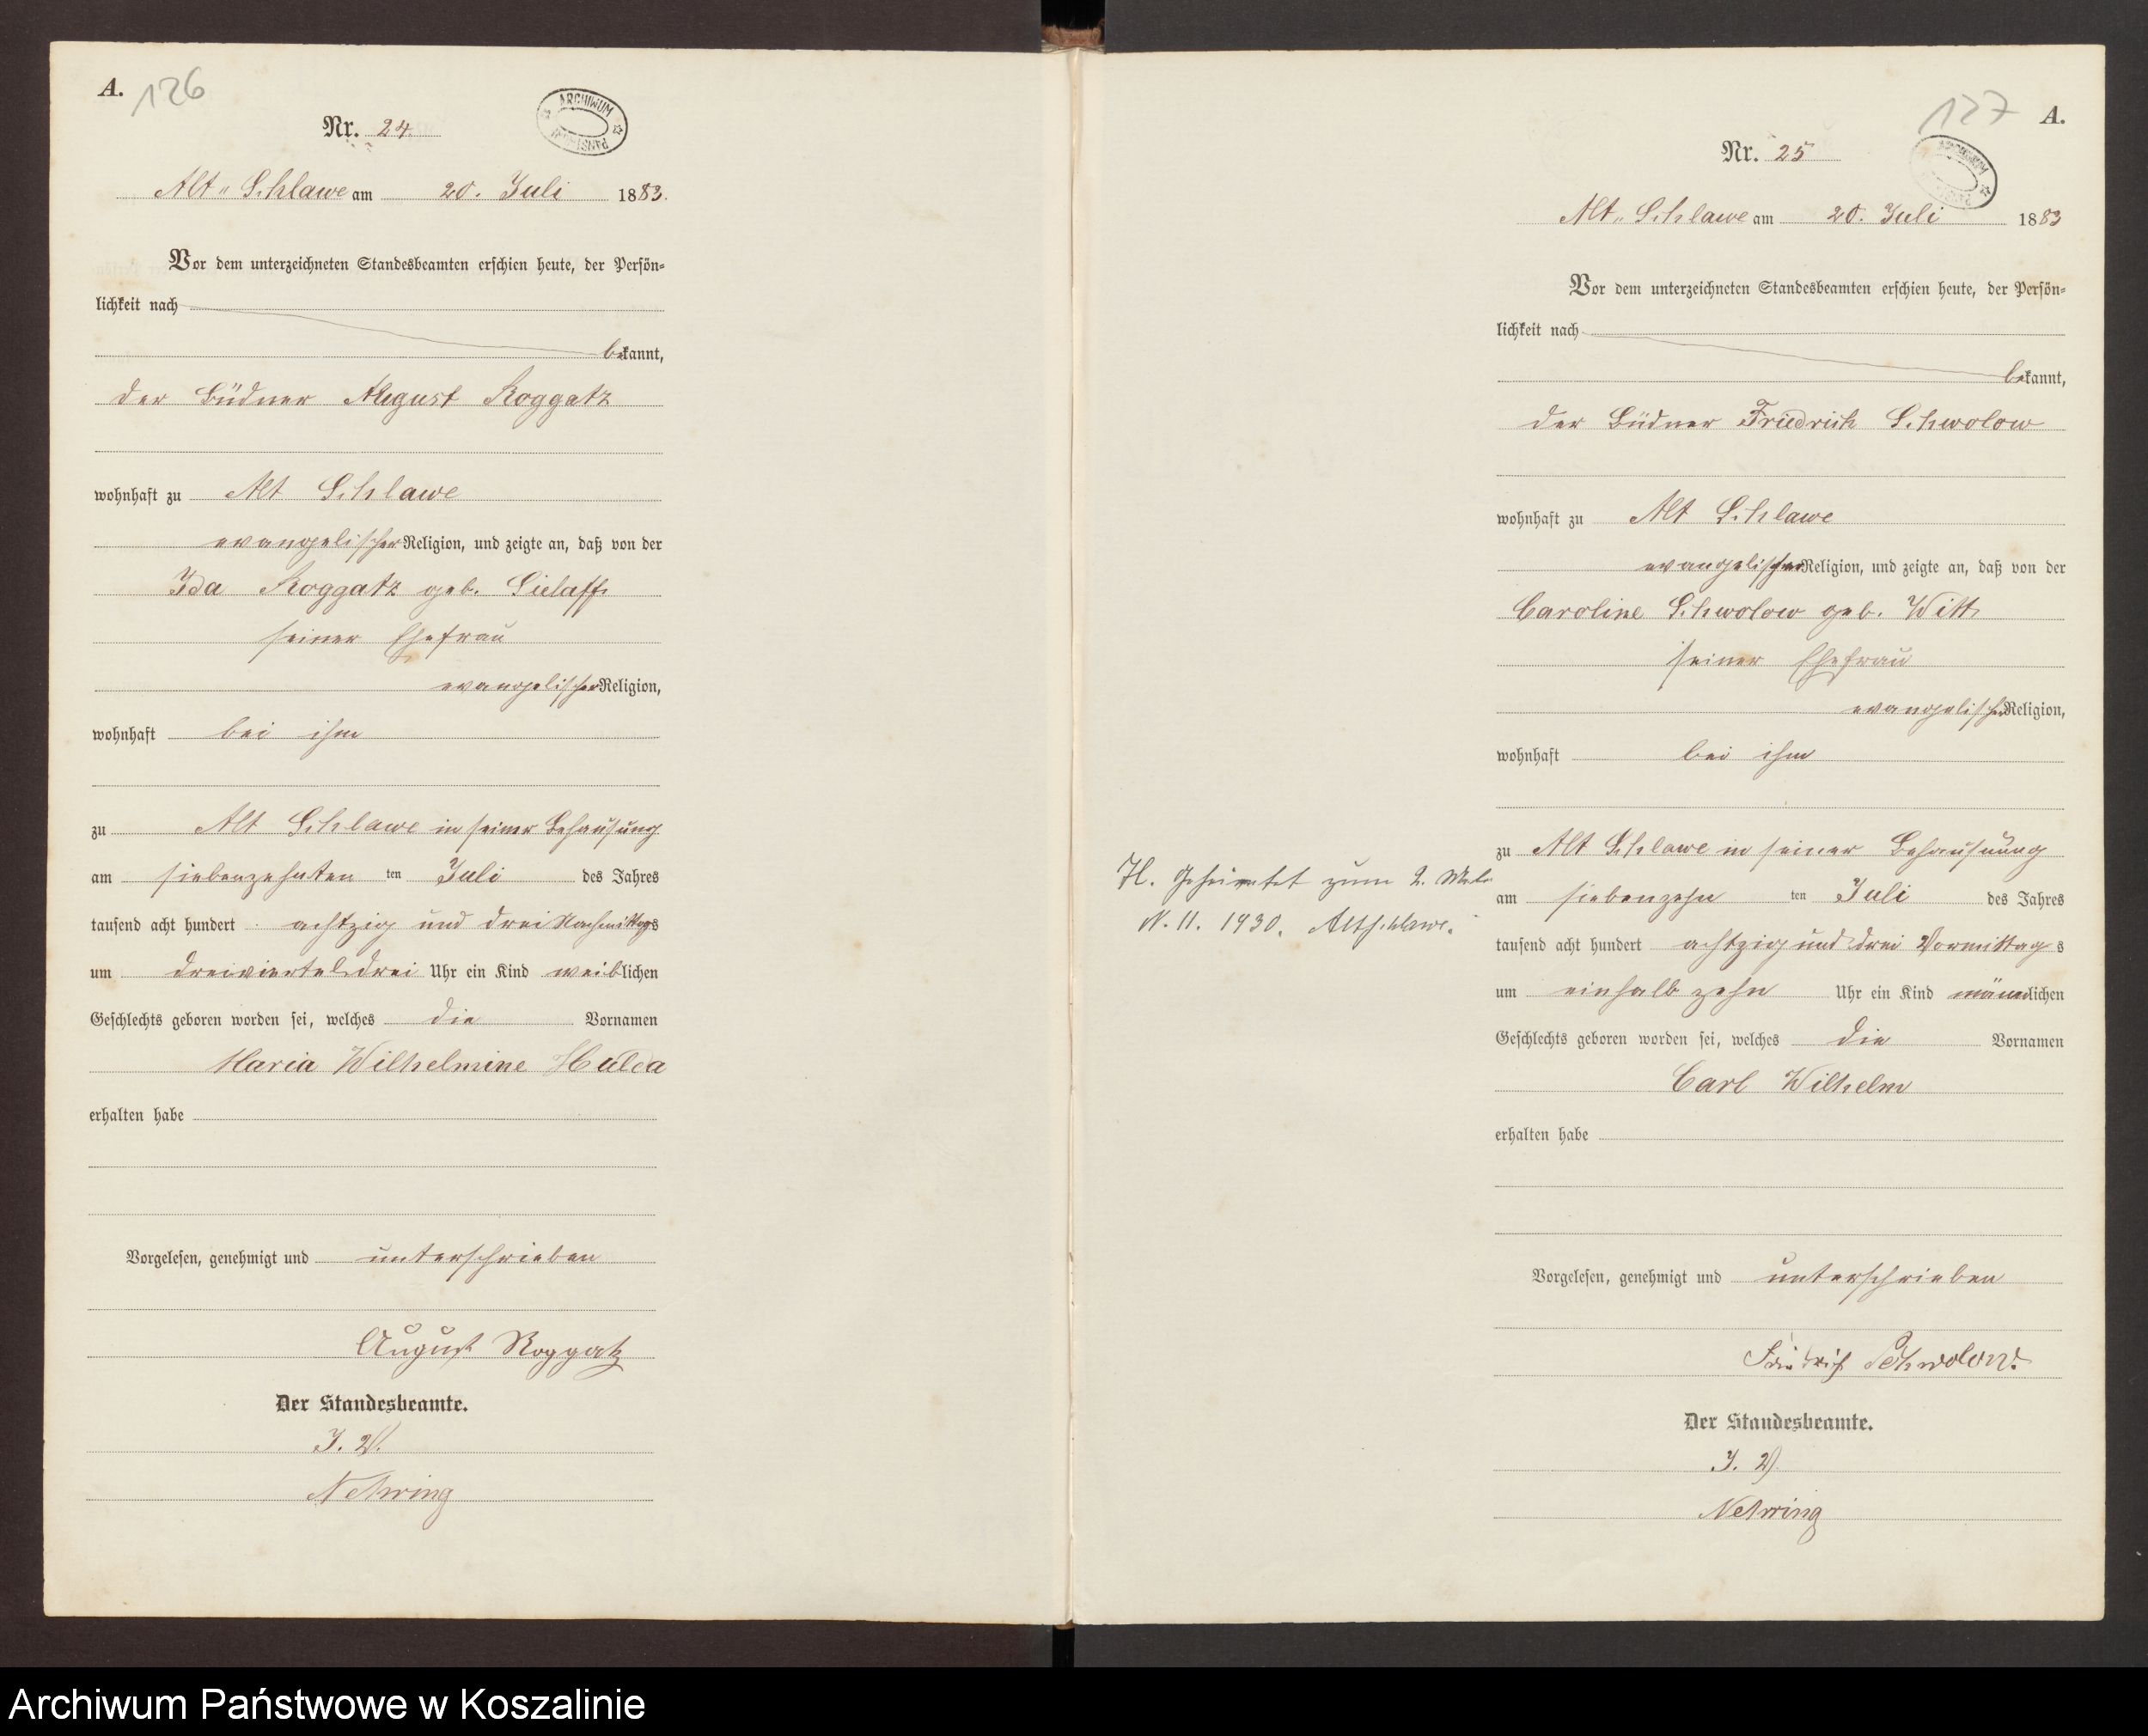 A. 126
ARCHIWUM PAŃSTWOWE
Nr. 24.
Alt-Schlawe am 20. Juli 1883.
Vor dem unterzeichneten Standesbeamten erschien heute, der Persön-
lichkeit nach
bekannt,
der Büdner August Roggatz
wohnhaft zu Alt Schlawe
evangelischer Religion, und zeigte an, daß von der
Ida Roggatz geb. Sielaff
seiner Ehefrau
evangelischer Religion,
wohnhaft bei ihm
zu Alt Schlawe in seiner Behausung
am siebenzehnten ten Juli des Jahres
tausend acht hundert achtzig und drei Nachmittags
um dreiviertel drei Uhr ein Kind weiblichen
Geschlechts geboren worden sei, welches die Vornamen
Maria Wilhelmine Hulda
erhalten habe
Vorgelesen, genehmigt und unterschrieben
August Roggatz
Der Standesbeamte.
J. V.
Nehring
127 A.
Nr. 25
Alt-Schlawe am 20. Juli 1883
Vor dem unterzeichneten Standesbeamten erschien heute, der Persön-
lichkeit nach
bekannt,
der Büdner Friedrich Schwolow
wohnhaft zu Alt Schlawe
evangelischer Religion, und zeigte an, daß von der
Caroline Schwolow geb. Witt
seiner Ehefrau
evangelischer Religion,
wohnhaft bei ihm
zu Alt Schlawe in seiner Behausung
am siebenzehn ten Juli des Jahres
tausend acht hundert achtzig und drei Vormittags
um einhalb zehn Uhr ein Kind männlichen
Geschlechts geboren worden sei, welches die Vornamen
Carl Wilhelm
erhalten habe
Vorgelesen, genehmigt und unterschrieben
Friedrich Schwolow.
Der Standesbeamte.
J. V.
Nehring
H. Geheiratet zum 2. Male
N. 11. 1930. Altschlawe.
Archiwum Państwowe w Koszalinie